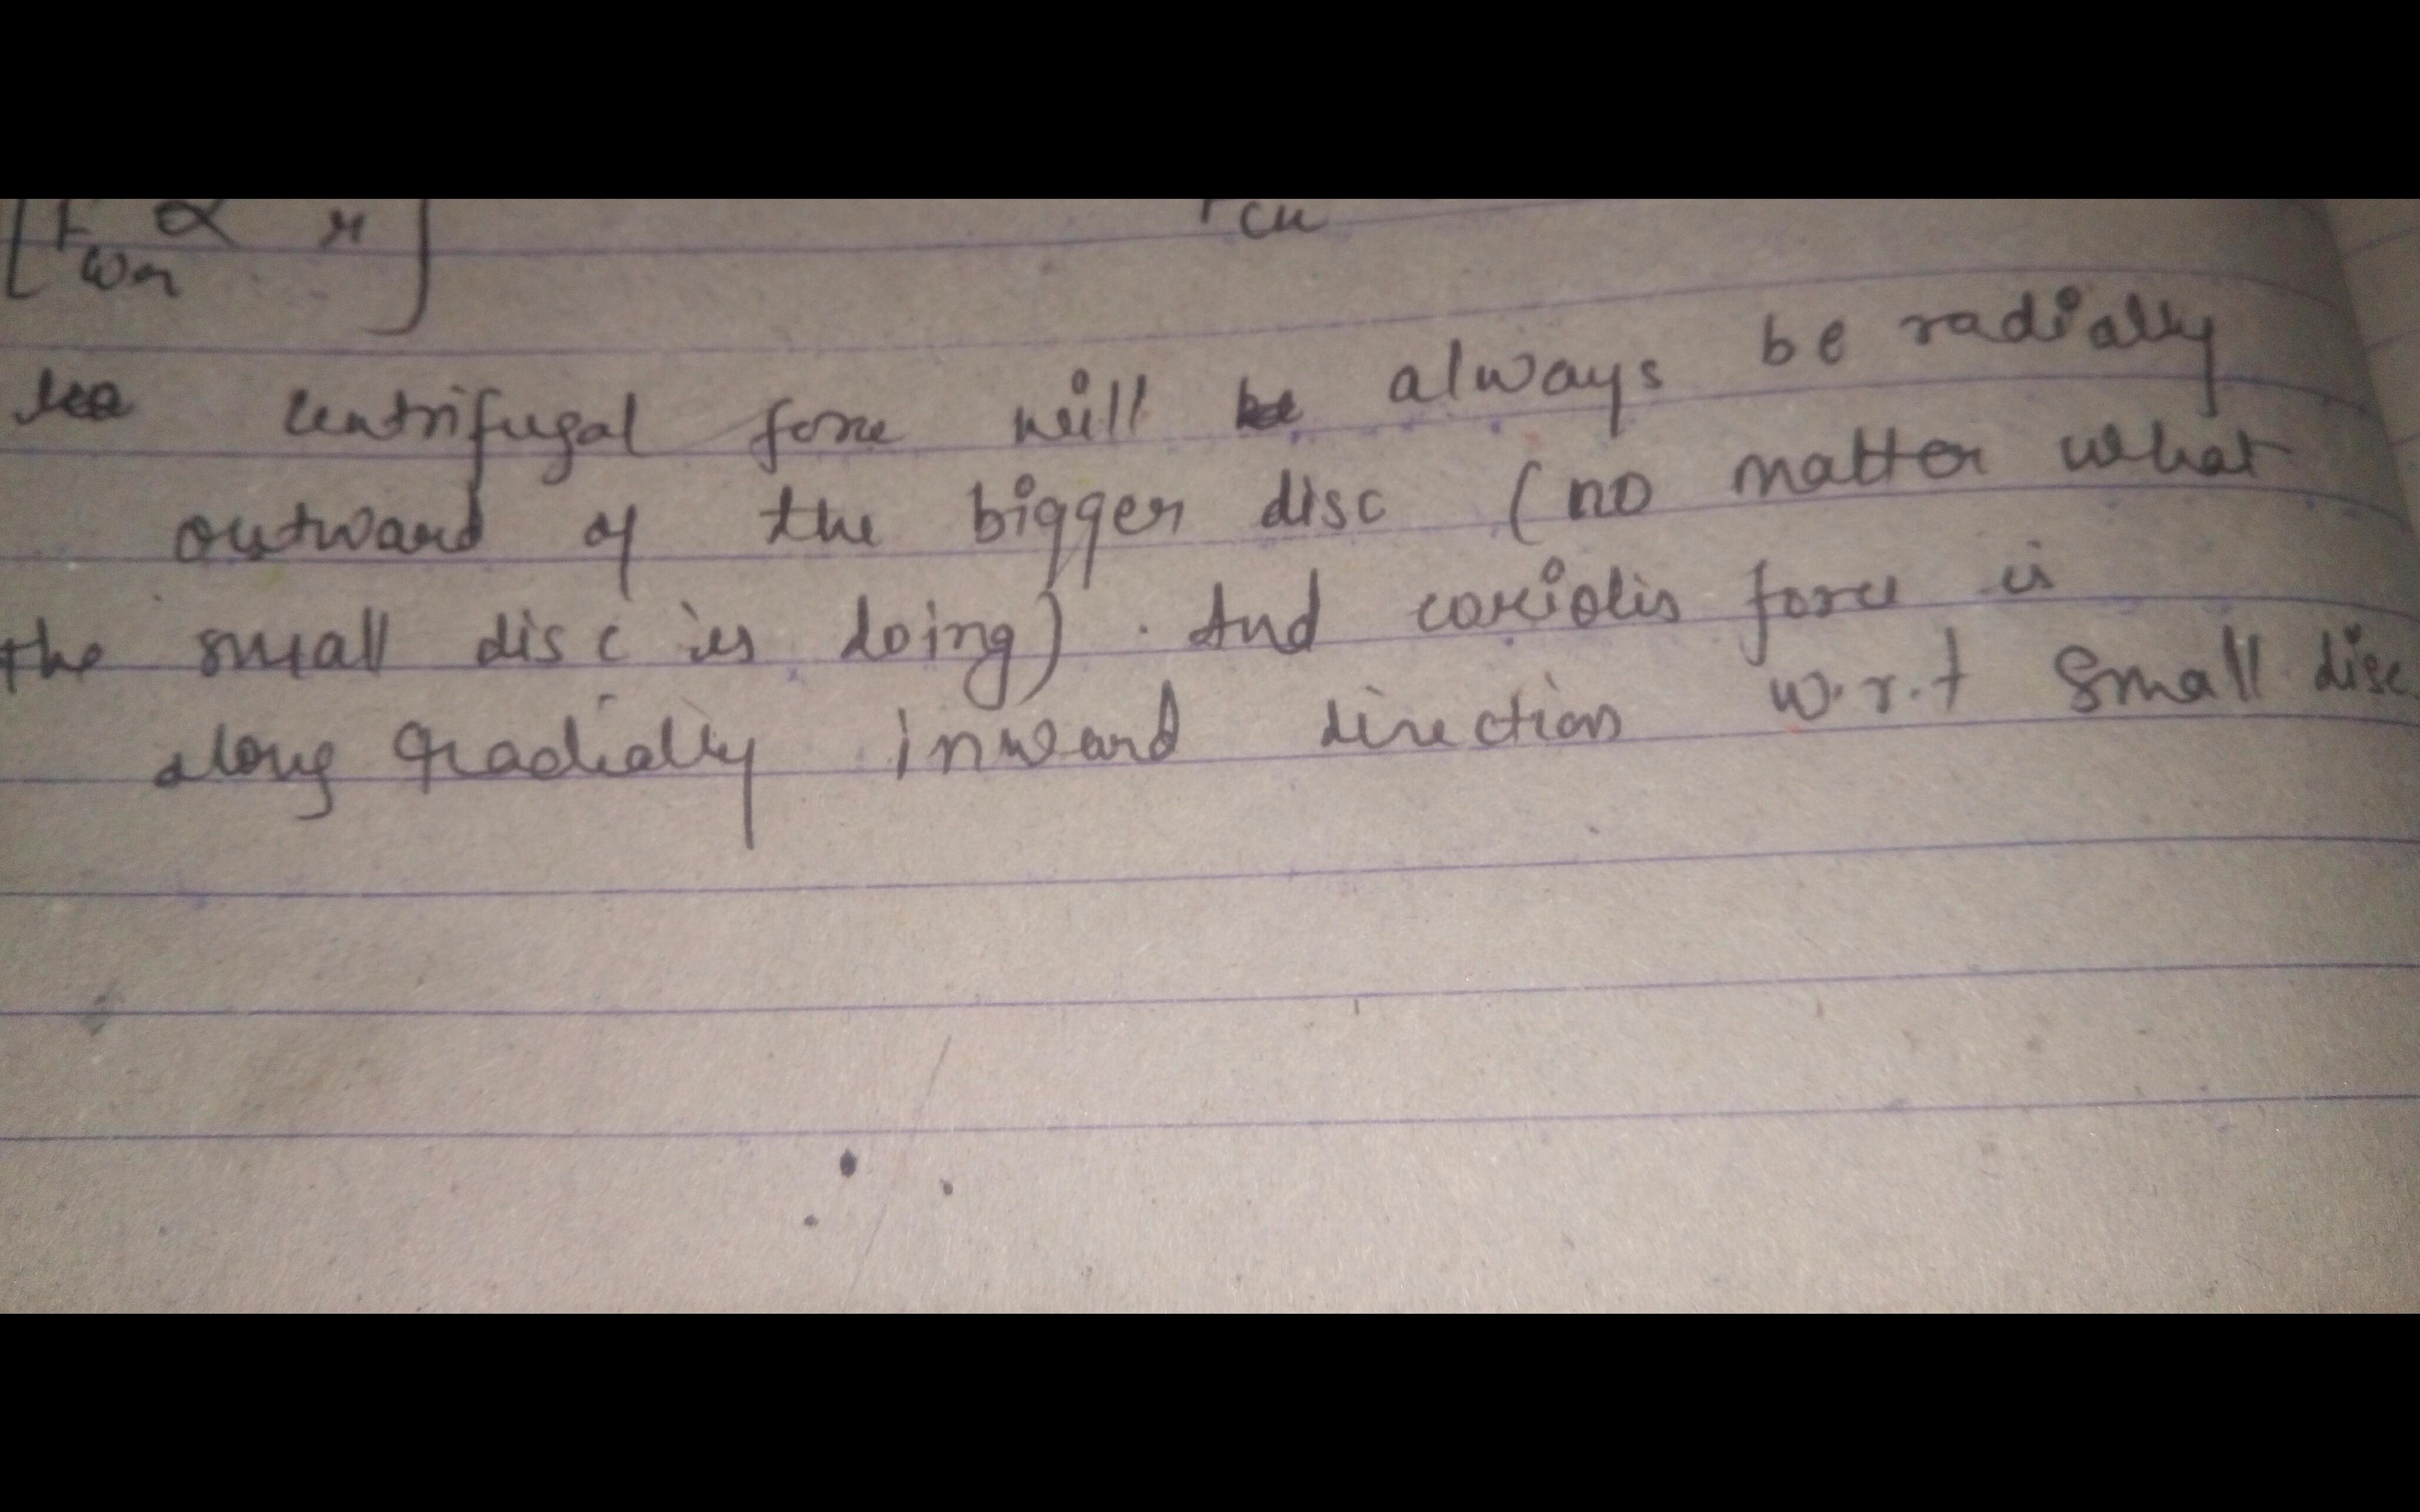 [F ωr α r]
Fcu
centrifugal force will always be radially
outward of the bigger disc (no matter what
the small disc is doing). And coriolis force is
along radially inward direction w.r.t small disc